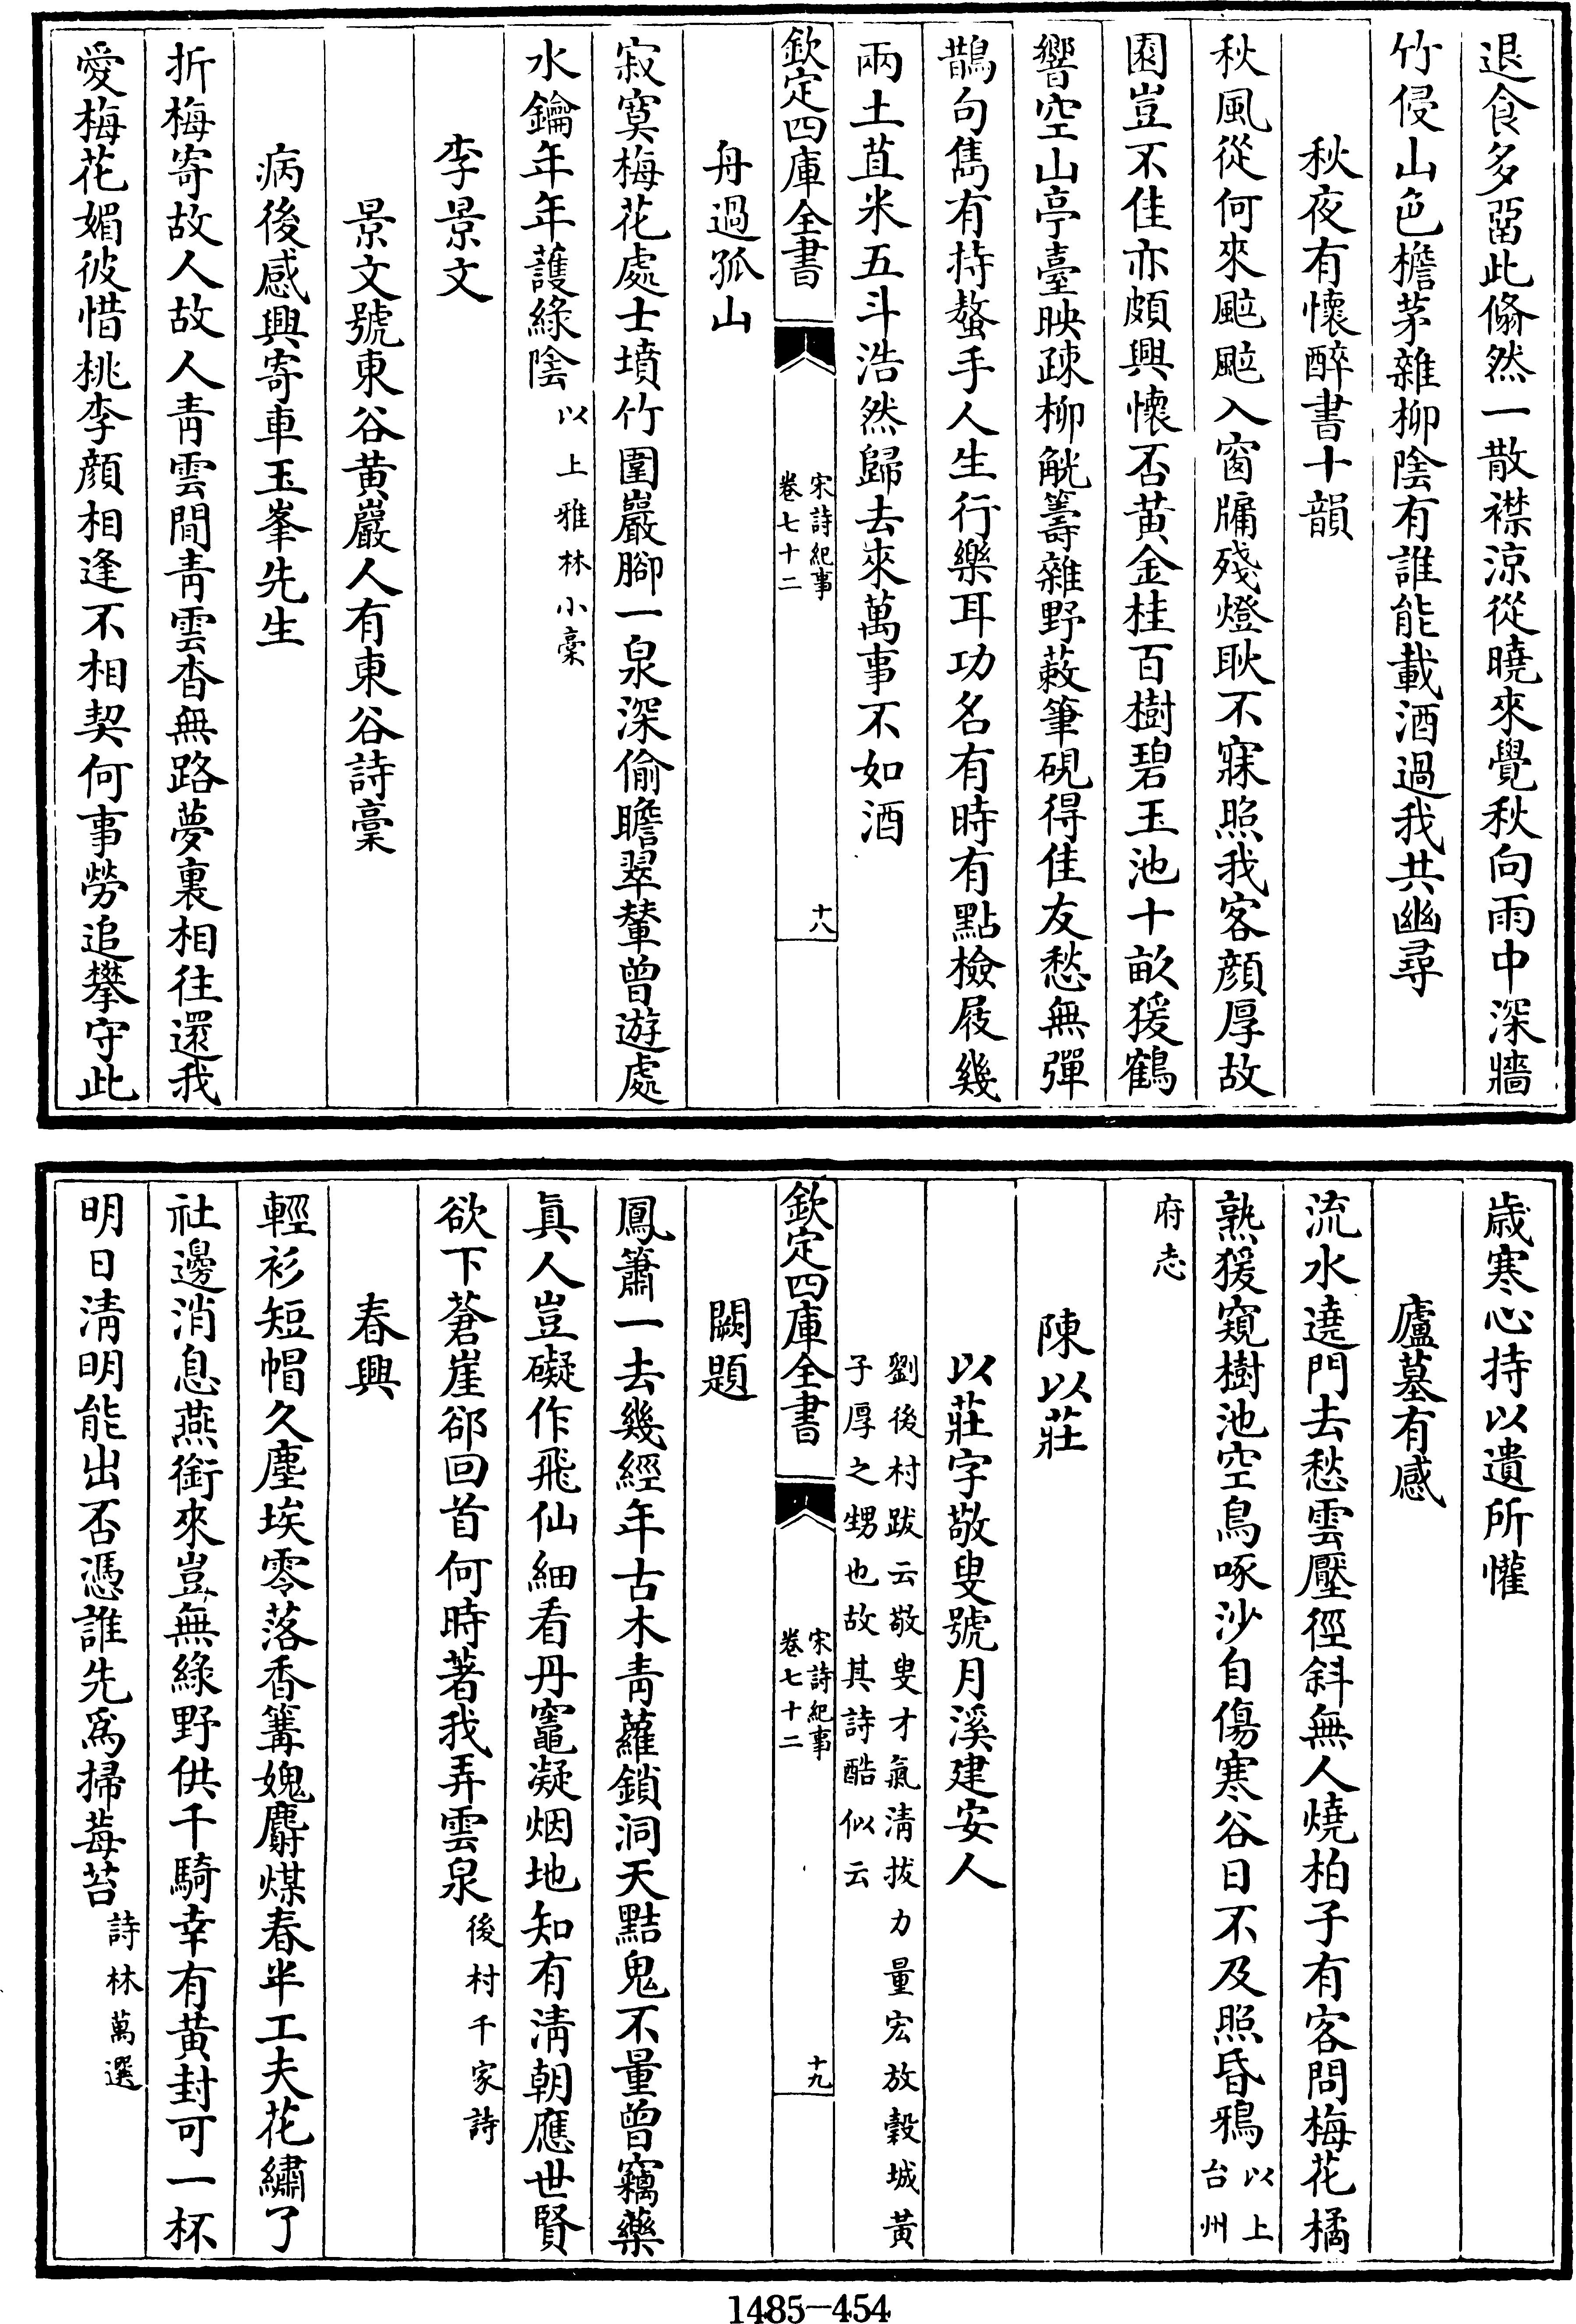 退食多留此翛然一散襟涼從曉來覺秋向雨中深牆
竹侵山色檐茅雜柳陰有誰能載酒過我共幽尋
秋夜有懷醉書十韻
秋風從何來颭颭入窗牖殘燈耿不寐照我客顏厚故
園豈不佳亦頗興懷否黃金桂百樹碧玉池十畝猨鶴
響空山亭臺映疎柳觥籌雜野蔌筆硯得佳友愁無彈
鵲句雋有持螯手人生行樂耳功名有時有點檢屐幾
兩土苴米五斗浩然歸去來萬事不如酒
欽定四庫全書
宋詩紀事
卷七十二
十八
舟過孤山
寂寞梅花處士墳竹圍巖腳一泉深偷瞻翠輦曾遊處
水鑰年年護綠陰以上雅林小稾
李景文
景文號東谷黃巖人有東谷詩稾
病後感興寄車玉峯先生
折梅寄故人故人青雲間青雲杳無路夢裏相往還我
愛梅花媚彼惜桃李顏相逢不相契何事勞追攀守此
歲寒心持以遺所懽
廬墓有感
流水遶門去愁雲壓徑斜無人燒柏子有客問梅花橘
熟猨窺樹池空鳥啄沙自傷寒谷日不及照昏鴉以上台州
府志
陳以莊
以莊字敬叟號月溪建安人
劉後村跋云敬叟才氣清拔力量宏放穀城黃
子厚之甥也故其詩酷似云
欽定四庫全書
宋詩紀事
卷七十二
十九
闕題
鳳簫一去幾經年古木青蘿鎖洞天黠鬼不量曾竊藥
真人豈礙作飛仙細看丹竈凝烟地知有清朝應世賢
欲下蒼崖卻回首何時著我弄雲泉後村千家詩
春興
輕衫短帽久塵埃零落香篝媿麝煤春半工夫花繡了
社邊消息燕銜來豈無綠野供千騎幸有黃封可一杯
明日清明能出否憑誰先爲掃莓苔詩林萬選
1485-454